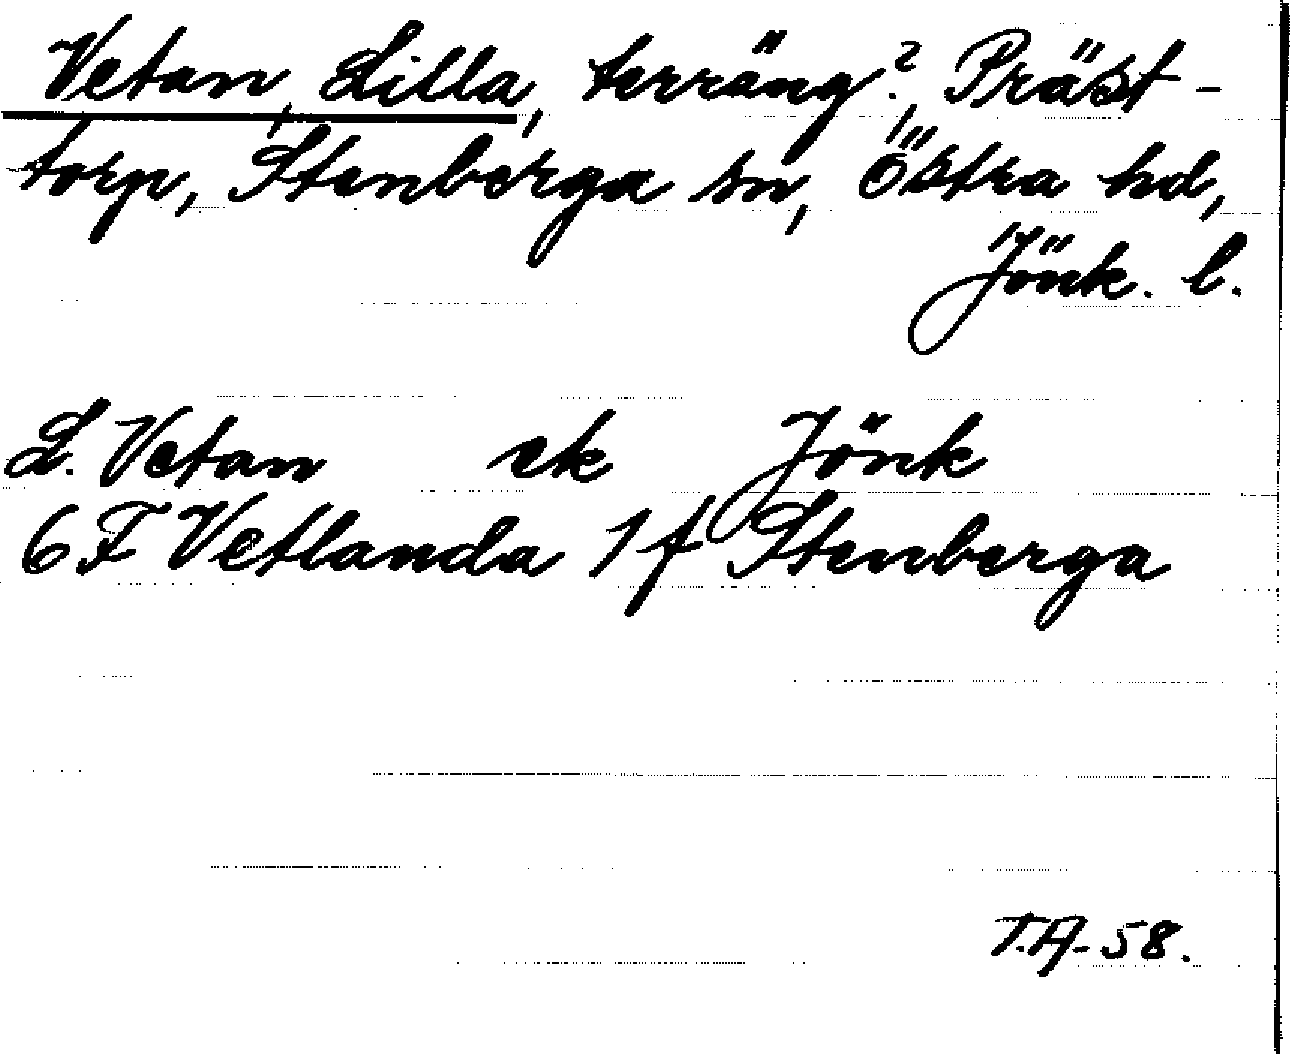 Vetan, Lilla, terräng?, Präst-
torp, Stenberga sn, Östra hd,
Jönk. l.
L. Vetan ek Jönk
6F Vetlanda 1f Stenberga
T.A-58.